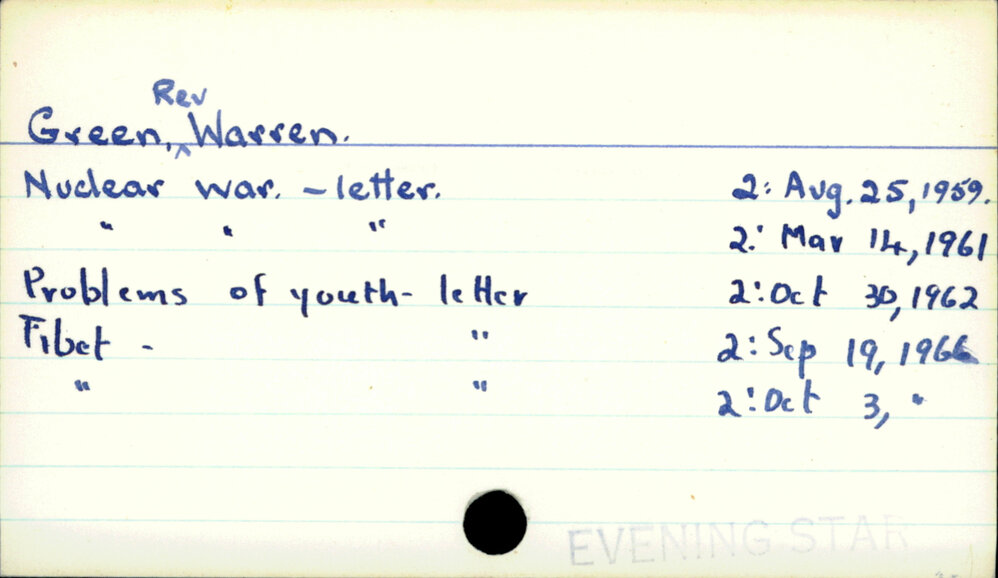 Rev
Green, ^ Warren.
Nuclear war. - letter. 2: Aug. 25, 1959.
" " " 2: Mar 14, 1961
Problems of youth - letter 2: Oct 30, 1962
Tibet - " 2: Sep 19, 1966
" " 2: Oct 3, "
EVENING STAR